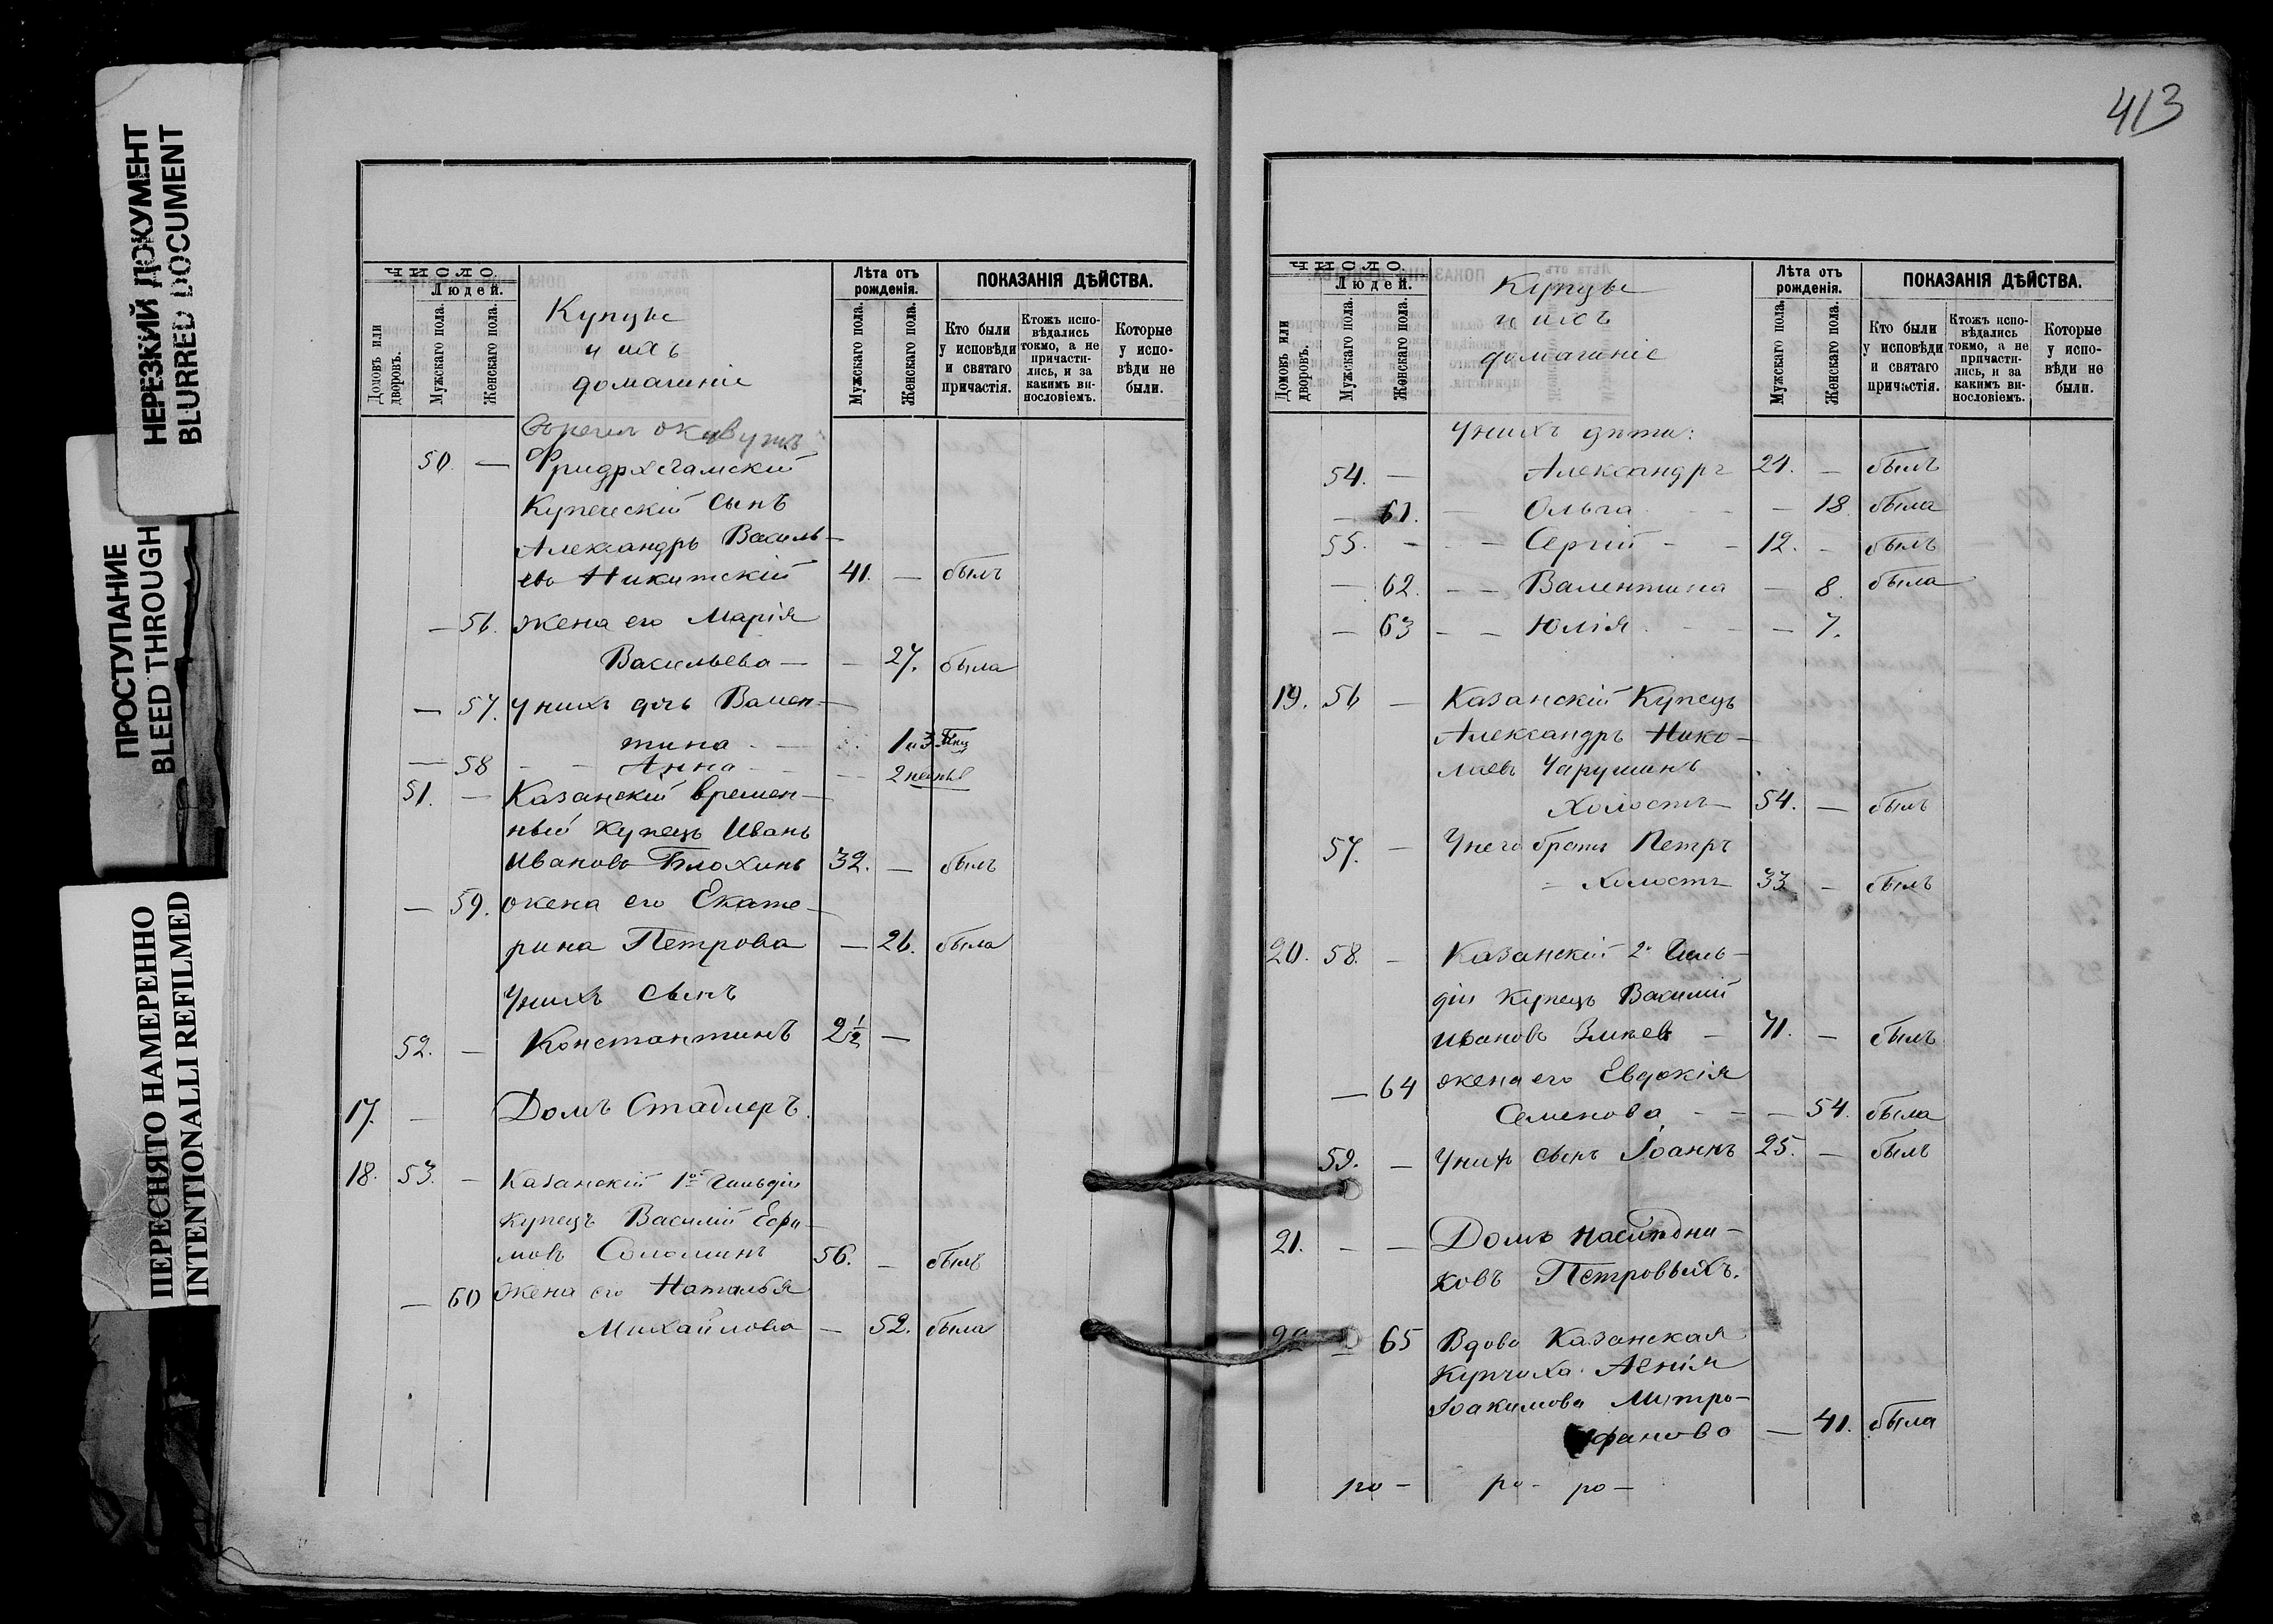 НЕРЕЗКИЙ ДОКУМЕНТ
BLURRED DOCUMENT
ПРОСТУПАНИЕ
BLEED THROUGH
ПЕРЕСНЯТО НАМЕРЕННО
INTENTIONALLI REFILMED
ЧИСЛО.
Людей.
Домовъ или дворовъ.
Мужскаго пола.
Женскаго пола.
Купцы
и ихъ
домашніе
Лѣта отъ рожденія.
Мужскаго пола.
Женскаго пола.
ПОКАЗАНІЯ ДѢЙСТВА.
Кто были у исповѣди и святаго причастія.
Ктожъ испо-вѣдались токмо, а не причасти-лись, и за какимъ ви-нословіемъ.
Которые у испо-вѣди не были.
50. —
Купеческій сынъ
Александръ Василь-
евъ Никитскій 41. — былъ
— 56. жена его Марія
Васильева — — 27. была
— 57. У нихъ дочь Вален-
тина
— 58 — — Анна
51. — Казанскій времен-
ный купецъ Иванъ
Ивановъ Блохинъ 32. — былъ
— 59. жена его Екате-
рина Петрова — 26. была
У нихъ сынъ
52. — Константинъ 2½ —
17. — Домъ Стадлеръ.
18. 53. — Казанскій 1ой гильдіи
купецъ Василій Ефи-
мовъ Соломинъ 56. — былъ
— 60 жена его Наталья
Михайлова — 52. была
413
ЧИСЛО.
Людей.
Домовъ или дворовъ.
Мужскаго пола.
Женскаго пола.
Купцы
и ихъ
домашніе
Лѣта отъ рожденія.
Мужскаго пола.
Женскаго пола.
ПОКАЗАНІЯ ДѢЙСТВА.
Кто были у исповѣди и святаго причастія.
Ктожъ испо-вѣдались токмо, а не причасти-лись, и за какимъ ви-нословіемъ.
Которые у испо-вѣди не были.
У нихъ дѣти:
54. — Александръ 21. — былъ
— 61. — Ольга — 18. была
55. — — — Сергій — — 12. — былъ
— 62. — — Валентина — 8. была
— 63 — — Юлія — 7.
19. 56 — Казанскій Купецъ
Александръ Нико-
лаевъ Чарушинъ
Холостъ 54. — былъ
57. — У него братъ Петръ
= Холостъ 33 — былъ
20. 58. — Казанскій 2й Гиль-
діи Купецъ Василій
Ивановъ Змѣевъ — 71. — былъ
— 64 жена его Евдокія
Семенова — — — 54. была
59. — У нихъ сынъ Іоаннъ 25. — былъ
21. — — Домъ наслѣдни-
ковъ Петровыхъ.
65 Вдова Казанская
Купчиха
Іоакимова Митро-
фанова — 41. была
ро — ро — ро —